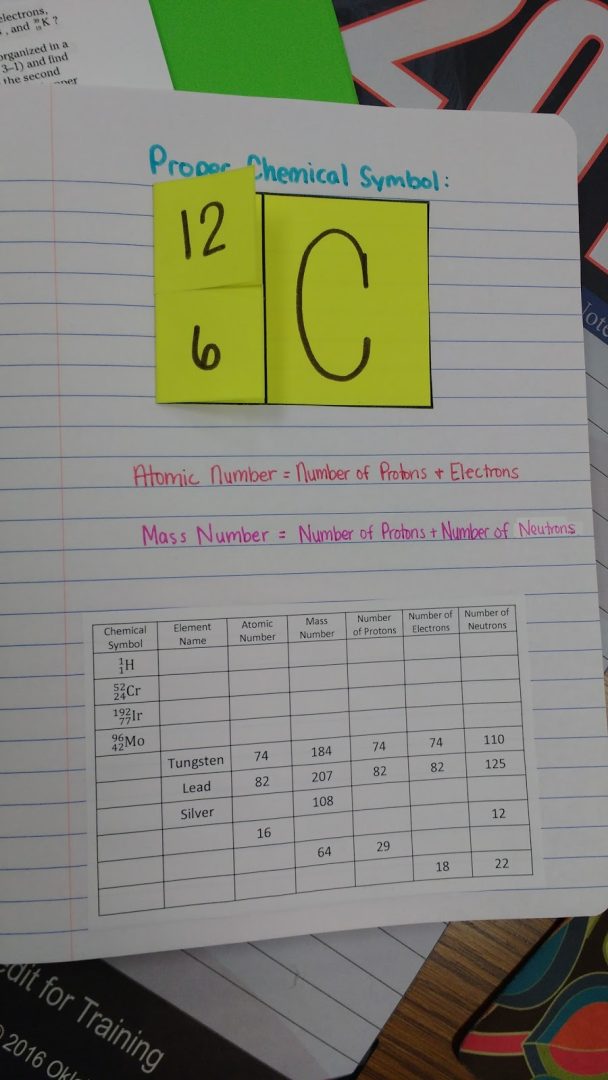 lectrons,
, and ³⁹₁₉K ?
organized in a
3–1) and find
the second
Proper Chemical Symbol:
12
6
C
Atomic Number = Number of Protons + Electrons
Mass Number = Number of Protons + Number of Neutrons
Chemical Symbol | Element Name | Atomic Number | Mass Number | Number of Protons | Number of Electrons | Number of Neutrons
¹₁H
⁵²₂₄Cr
¹⁹²₇₇Ir
⁹⁶₄₂Mo
Tungsten 74 184 74 74 110
Lead 82 207 82 82 125
Silver 108
16 12
64 29
18 22
dit for Training
© 2016 Ok